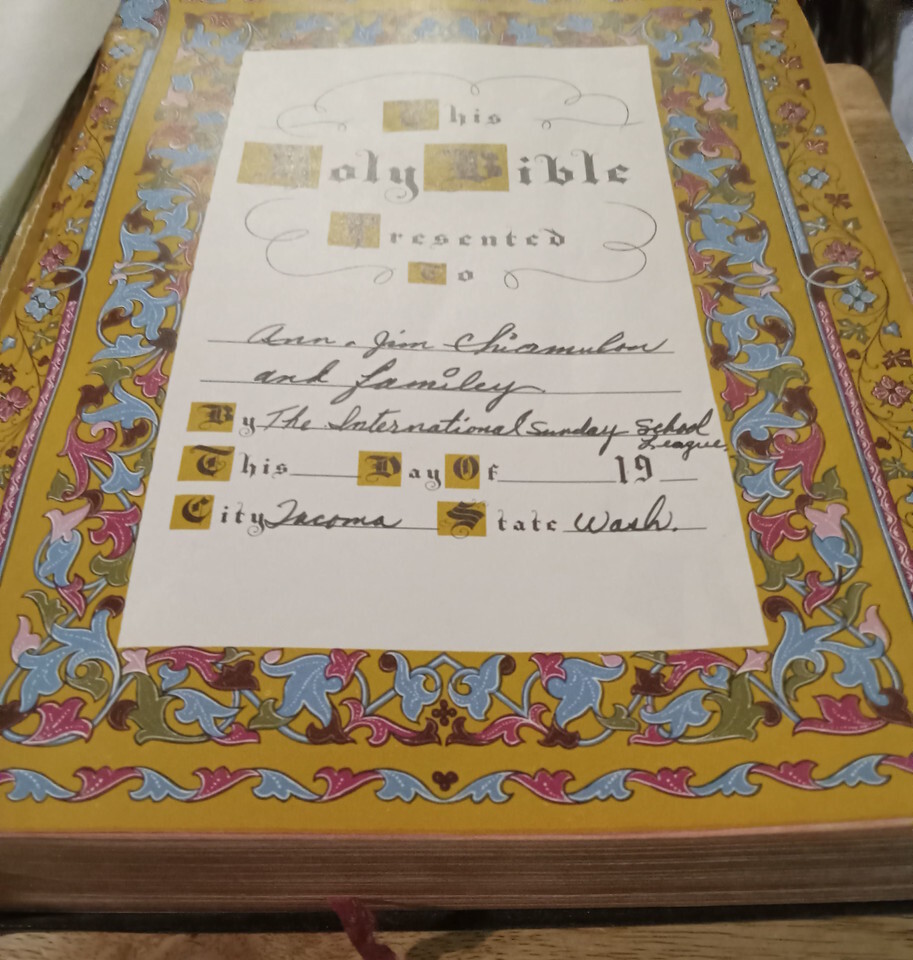 This
Holy Bible
Presented
To
Ann. Jim
and familey
By The International Sunday School League
This Day Of 19
City Tacoma State Wash.